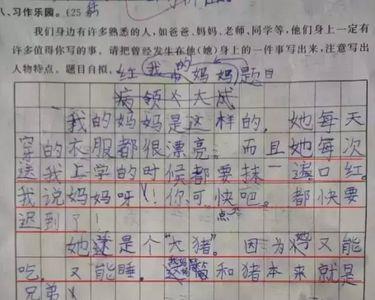 、习作乐园。(25
我们身边有许多熟悉的人,如爸爸、妈妈、老师、同学等,他们身上一定有
许多值得你写的事。请把曾经发生在他(她)身上的一件事写出来,注意写出
人物特点。题目自拟。红 我的妈妈 题目
病领义大成
我的妈妈是这样的,她每天
穿的衣服都很漂亮。而且她每次
送我上学的时候都要抹一遍口红。
我说妈妈呀!你可快点吧。都快要
迟到了!
她还是个“大猪”。因为猪又能
吃。又能睡。和猪本来就是
兄弟!